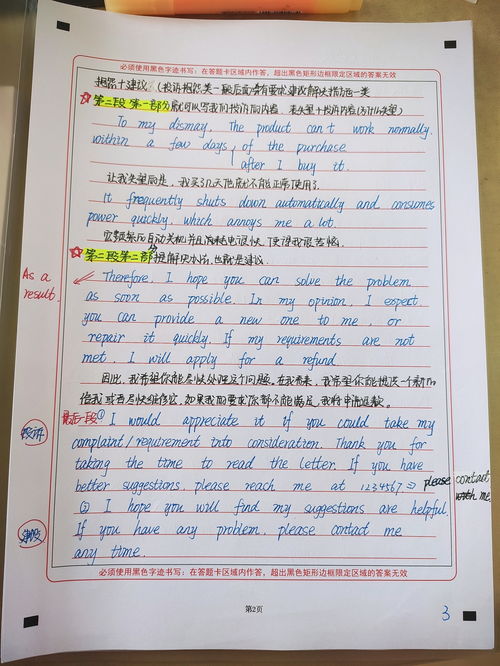 必须使用黑色字迹书写：在答题卡区域内作答，超出黑色矩形边框限定区域的答案无效
抱怨+建议
第二段 第一部分
To my dismay, The product can't work normally
within a few days of the purchase
after I buy it.
让我失望的是，我买了几天他就不能正常使用了
It frequently shuts down automatically and consumes
power quickly, which annoys me a lot.
第二段第二部分 提解决办法，也就是建议
As a result.
Therefore, I hope you can solve the problem
as soon as possible. In my opinion, I expect
you can provide a new one to me, or
repair it quickly. If my requirements are not
met, I will apply for a refund
因此，我希望你能尽快处理这个问题。在我看来，我希望你能提供一个新的
给我或者尽快维修它，如果我的要求你都不能满足，我将申请退款
最后一段① I would appreciate it if you could take my
投诉
complaint/requirement into consideration. Thank you for
taking the time to read the letter. If you have
better suggestions, please reach me at 1234567 => please contact
with me
② I hope you will find my suggestions are helpful
建议
If you have any problem, please contact me
any time.
必须使用黑色字迹书写：在答题卡区域内作答，超出黑色矩形边框限定区域的答案无效
第2页
3